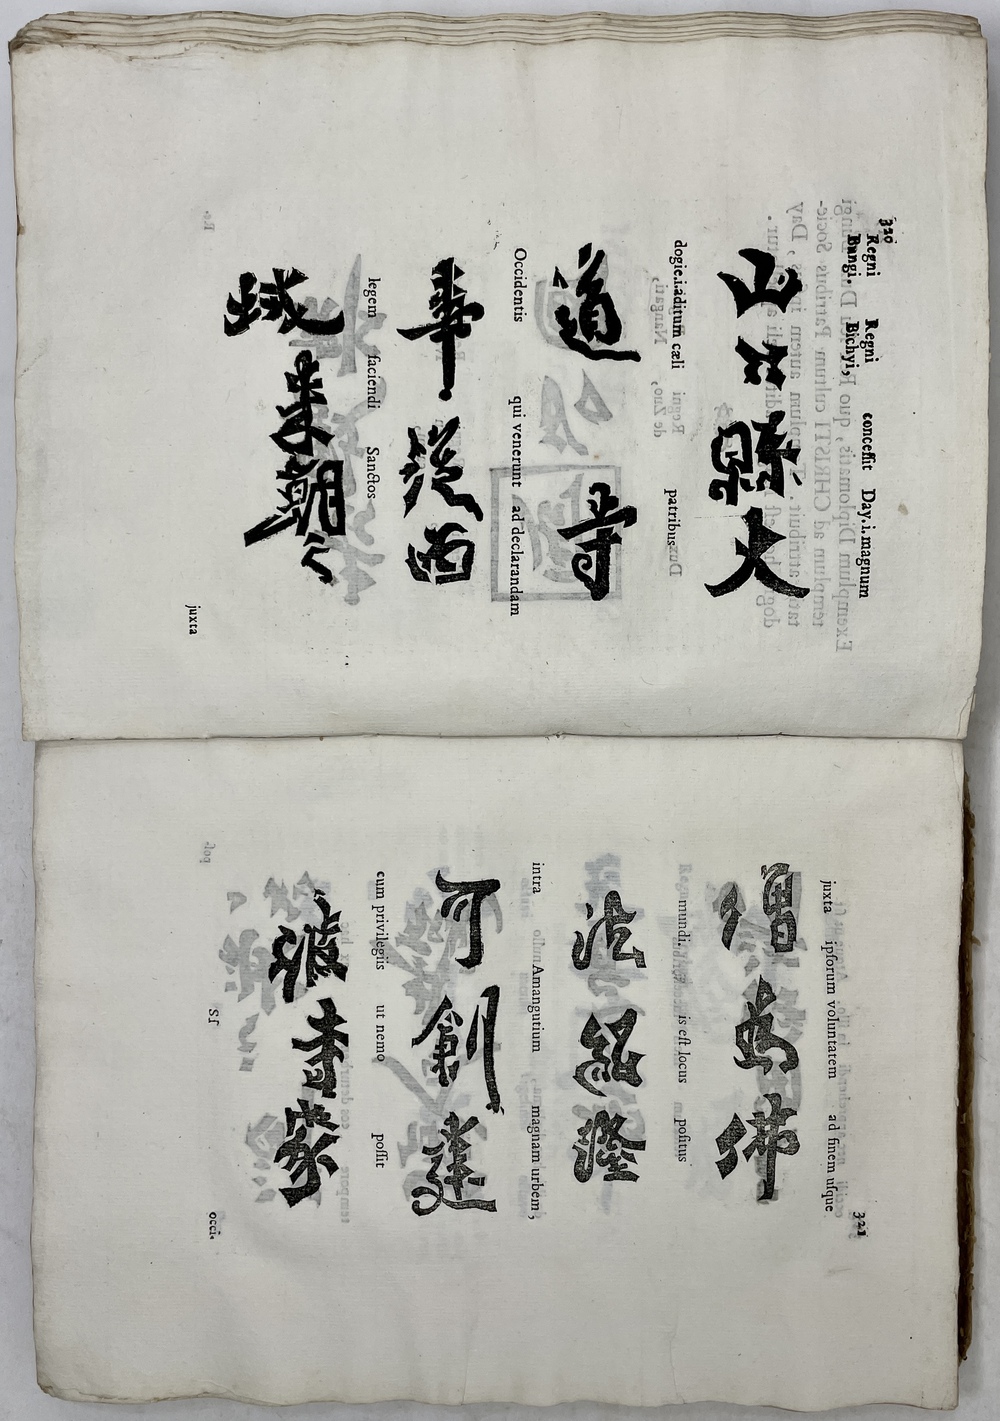 320
Regni Regni conceſſit Day.i.magnum
Bungi. Bichyi,
山口縣大
dogie.i.aditum cæli patribus
道寺
Occidentis qui venerunt ad declarandam
事從西
legem faciendi Sanctos
域來朝之
juxta
321
juxta ipſorum voluntatem ad finem uſque
僧為佛
mundi. is eſt locus poſitus
法紹隆
intra Amangutium magnam urbem,
可創建
cum privilegiis ut nemo poſſit
彼寺家
Sſ occi.